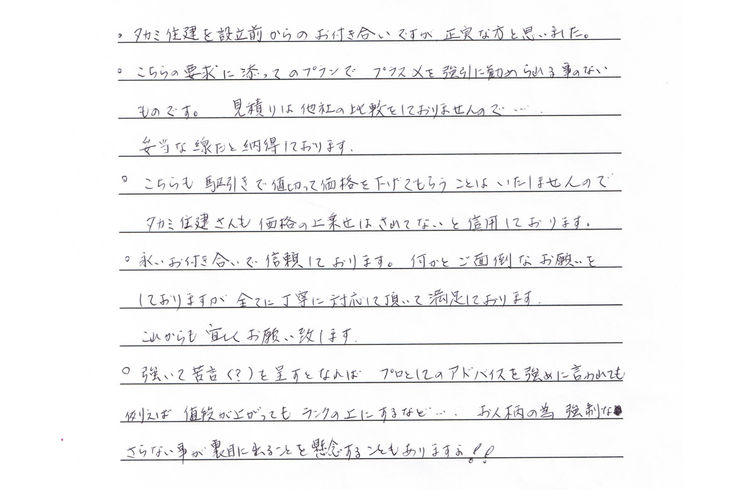 ・タカミ住建を設立前からのお付き合いですが、正実な方と思いました。
○ こちらの要求に添ってのプランで プラスメを強引に勧められる事のない
ものです。 見積りは他社の比較をしておりませんので…
妥当な線だと納得しております。
○ こちらも駆引きで値切って価格を下げてもらうことはいたしませんので
タカミ住建さんも価格の上乗せはされてないと信用しております。
○ 永いお付き合いで信頼しております。何かとご面倒なお願いを
しておりますが全てに丁寧に対応して頂いて満足しております。
これからも宜しくお願い致します。
○ 強いて苦言(?)を呈すとなれば プロとしてのアドバイスを強めに言われても
例えば 値段が上がっても ランクの上にするなど… お人柄の為 強制な
さらない事が裏目に出ることを懸念することもありますよ!!